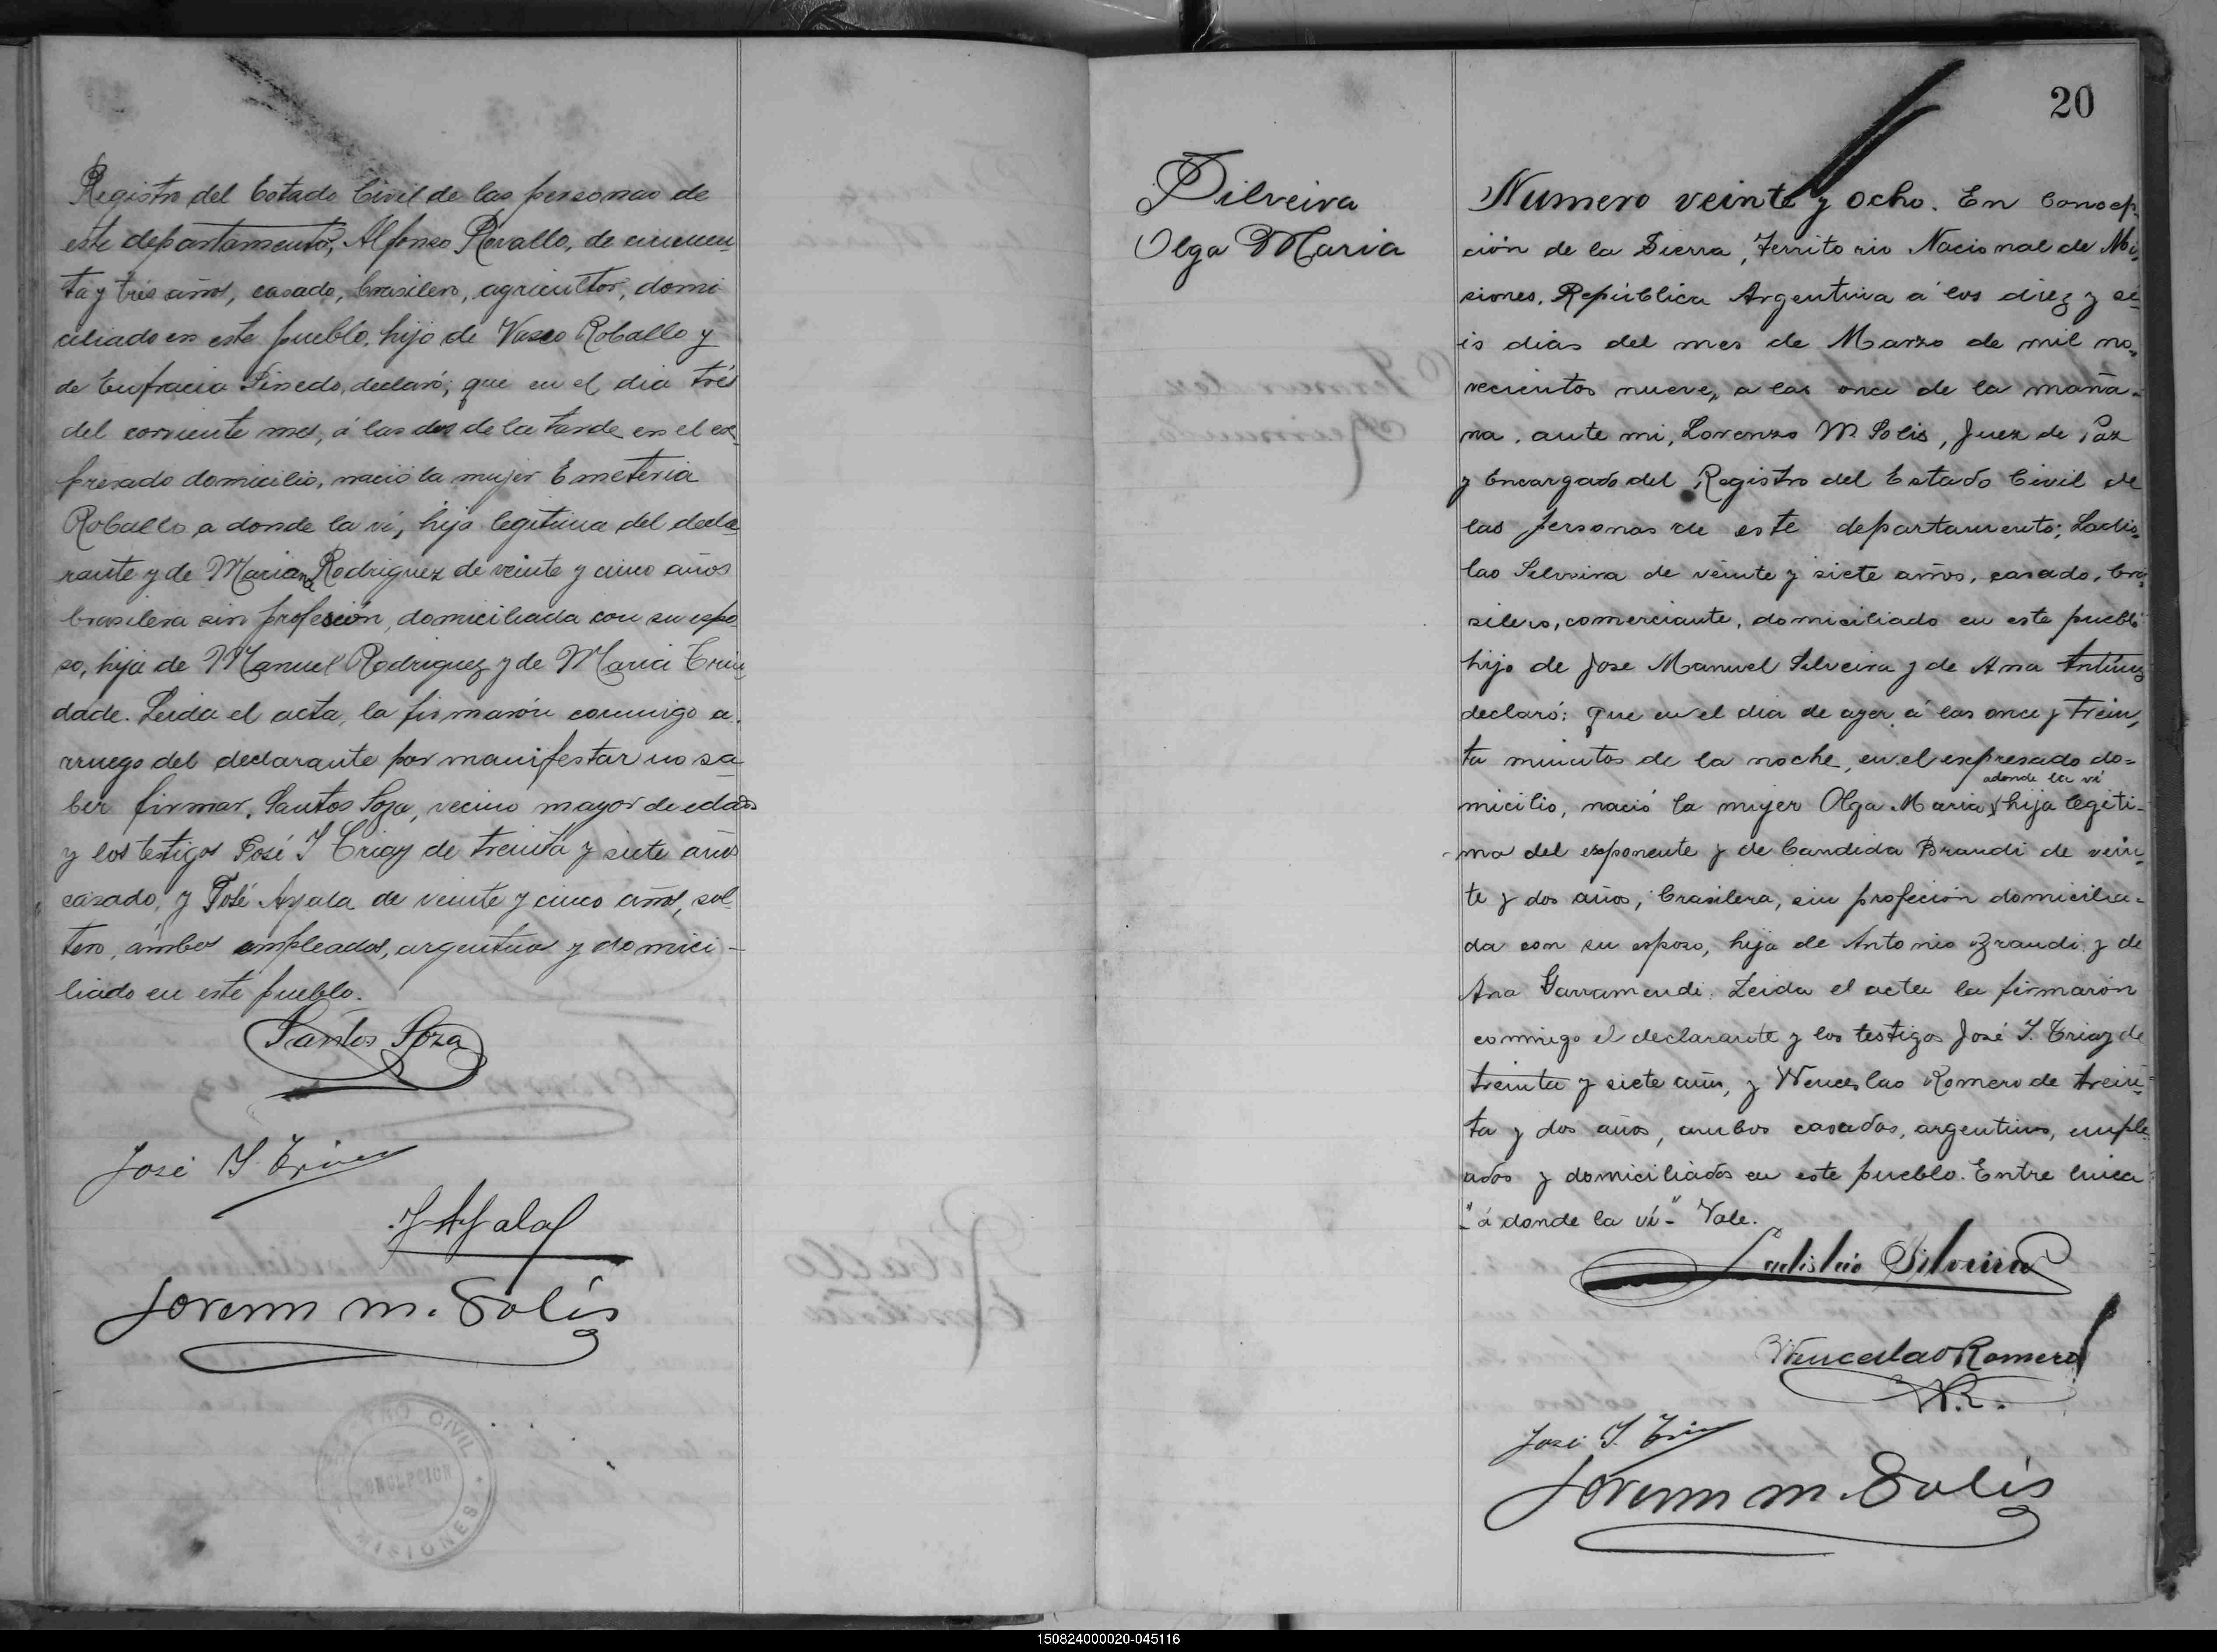 Registro del Estado Civil de las personas de
este departamento, Alfonso Rovallo, de cincuen
ta y tres años, casado, brasilero, agricultor, domi
ciliado en este pueblo, hijo de Vasco Roballo y
de Eufracia Pinedo, declaró; que en el dia tres
del corriente mes, á las dos de la tarde en el ex
presado domicilio, nació la mujer Emeteria
Roballo a donde la ví, hija legitima del decla
rante y de Mariana Rodriguez de veinte y cinco años
brasilera sin profesión, domiciliada con su espo
so, hija de Manuel Rodriguez y de Maria Trin
dade. Leida el acta, la firmarón conmigo a
rruego del declarante por manifestar no sa
ber firmar, Santos Soza, vecino mayor de edad
y los testigos José I Triay de treinta y siete años
casado, y José Ayala de veinte y cinco años, sol
tero, ámbos empleados, argentinos y domici-
liado en este pueblo.
Santos Soza
José I. Triay
J Ayala
Lorenzo M. Solís
REGISTRO CIVIL
CONCEPCION
MISIONES
20
Silveira
Olga Maria
Numero veinte y ocho. En Concep
ción de la Sierra, Territorio Nacional de Mi
siones, República Argentina á los diez y se
is dias del mes de Marzo de mil no
vecientos nueve, a las once de la maña-
na, ante mi, Lorenzo M. Solis, Juez de Paz
y Encargado del Registro del Estado Civil de
las personas de este departamento; Ladis
lao Silveira de veinte y siete años, casado, bra
silero, comerciante, domiciliado en este pueblo
hijo de Jose Manuel Silveira y de Ana Antúnez
declaró: que en el dia de ayer á las once y trein
ta minutos de la noche, en el expresado do=
adonde la ví
micilio, nació la mujer Olga Maria hija legiti-
ma del exponente y de Candida Brandi de vein
te y dos años, brasilera, sin profeción domicilia=
da con su esposo, hija de Antonio Brandi y de
Ana Garramendi. Leida el acta la firmarón
conmigo el declarante y los testigos José I. Triay de
treinta y siete años, y Wenceslao Romero de trein
ta y dos años, ambos casados, argentinos, emple
ados y domiciliados en este pueblo. Entre linea
"á donde la ví" Vale.
Ladislao Silveira
Wenceslao Romero
W.R.
José I. Triay
Lorenzo M. Solís
150824000020-045116